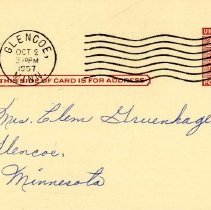 GLENCOE,
OCT 2
PM
1957
MINN.
THIS SIDE OF CARD IS FOR ADDRESS
Mrs. Clem Gruenhagen
Glencoe,
Minnesota